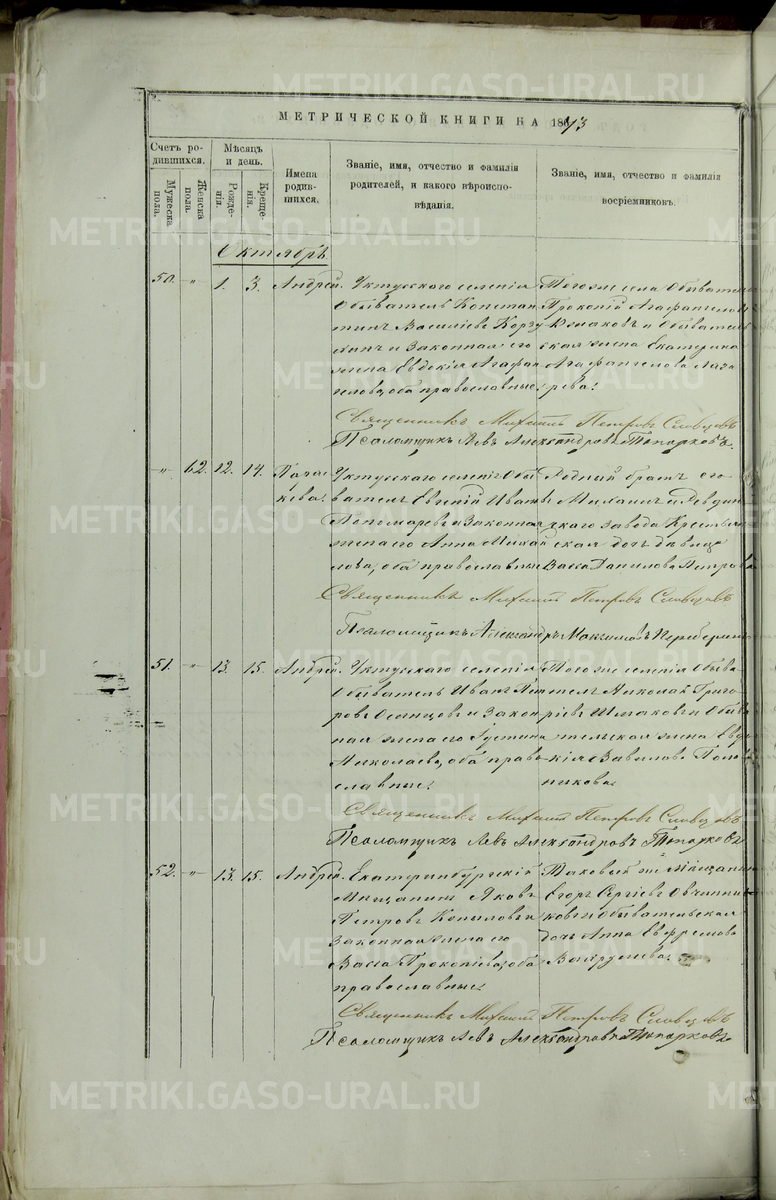 METRIKI.GASO-URAL.RU
МЕТРИЧЕСКОЙ КНИГИ НА 1873
Счетъ ро-
дившихся.
Мужеска
пола.
Женска
пола.
Мѣсяцъ
и день.
Рожде-
нія.
Креще-
нія.
Имена
родив-
шихся.
Званіе, имя, отчество и фамилія
родителей, и какого вѣроиспо-
вѣданія.
Званіе, имя, отчество и фамилія
воспріемниковъ.
Октябрь
50. " 1. 3. Андрей. Уктусскаго селенія
Обыватель Констан
тинъ Васильевъ
и Законная его
жена Евдокія Агафан
гелова, оба православные.
Того же села Обыватель
Прокопій Агафангеловъ
и Обыватель
ская жена Екатерина
Агафангелова Лаза
рева.
Священникъ Михаилъ Петровъ Словцовъ
Псаломщикъ Левъ Александровъ Топорковъ.
" 62. 12. 14. Параскева. Уктусскаго селенія Обы
ватель Евгеній Ивановъ
Пономаревъ и Законная
жена его Анна Михай
лова, оба православные
Родный братъ его
и Ревдин
скаго завода Крестьян
ская дочь дѣвица
Васса Данилова Петрова
Священникъ Михаилъ Петровъ Словцовъ
Псаломщикъ Александръ Максимовъ
51. " 13. 15. Андрей. Уктусскаго селенія
Обыватель Иванъ Пет
ровъ и Закон
ная жена его Іустина
Николаева, оба право
славные.
Того же селенія Обыва
тель Николай Григо
рьевъ и Обыва
тельская жена Евдо
кія Вавилова
Священникъ Михаилъ Петровъ Словцовъ
Псаломщикъ Левъ Александровъ Топорковъ
52. " 13. 15. Андрей. Екатеринбургскій
Мѣщанинъ Яковъ
Петровъ Копыловъ и
Законная жена его
Васса Прокопіева, оба
православные.
Таковый же Мѣщанинъ
Егоръ Сергіевъ Овчинни
ковъ и обывательская
дочь Анна Ефремова
Священникъ Михаилъ Петровъ Словцовъ
Псаломщикъ Левъ Александровъ Топорковъ